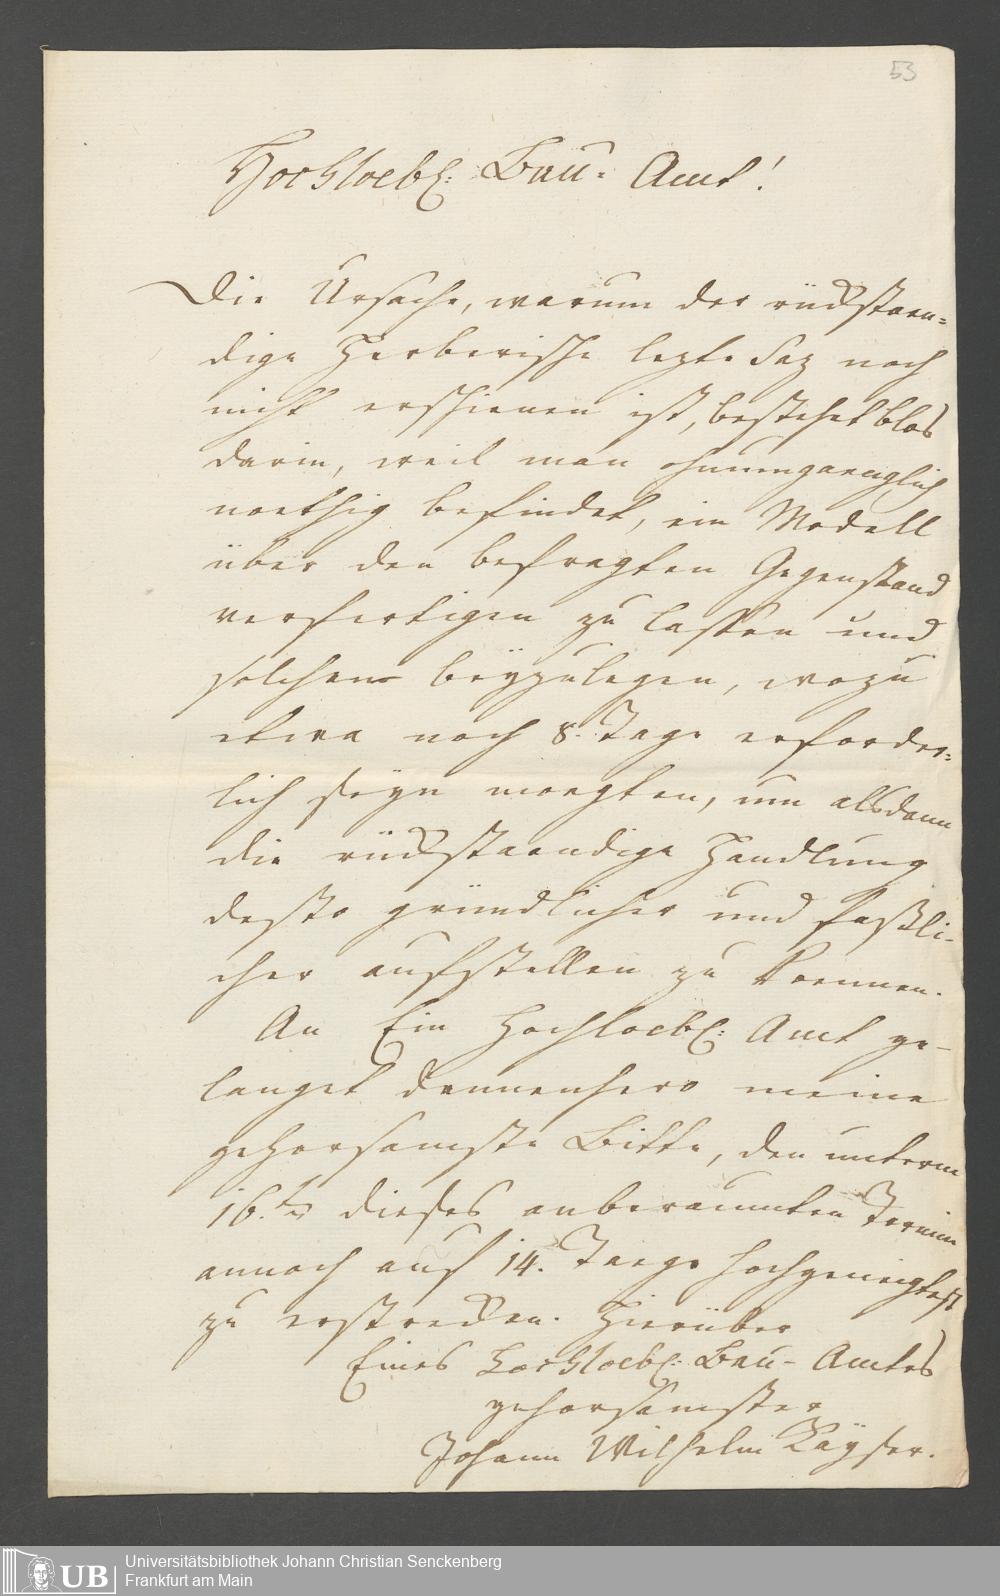 53
Hochloebl: Bau- Amt!
Die Ursache, warum der rückstaen=
dige Herberische lezte Saz noch
nicht erschienen ist, bestehet blos
darin, weil man ohnumgaenglich
noethig befindet, ein Modell
über den befragten Gegenstand
verfertigen zu lassen und
solchem beÿzulegen, wozu
etwa noch 8. Tage erforder=
lich seÿn moegten, um alsdann
die rückstaendige Handlung
desto gründlicher und faßli-
cher aufstellen zu koennen.
An Ein Hochloebl: Amt ge-
langet dannenhero meine
gehorsamste Bitte, den unterm
16.ten dieses anberaumten Termin
annoch auf 14. Taege hochgeneigtest
zu erstrecken. Hierüber
Eines Hochloebl: Bau- Amtes
gehorsamster
Johann Wilhelm Kaÿser.
UB
Universitätsbibliothek Johann Christian Senckenberg
Frankfurt am Main